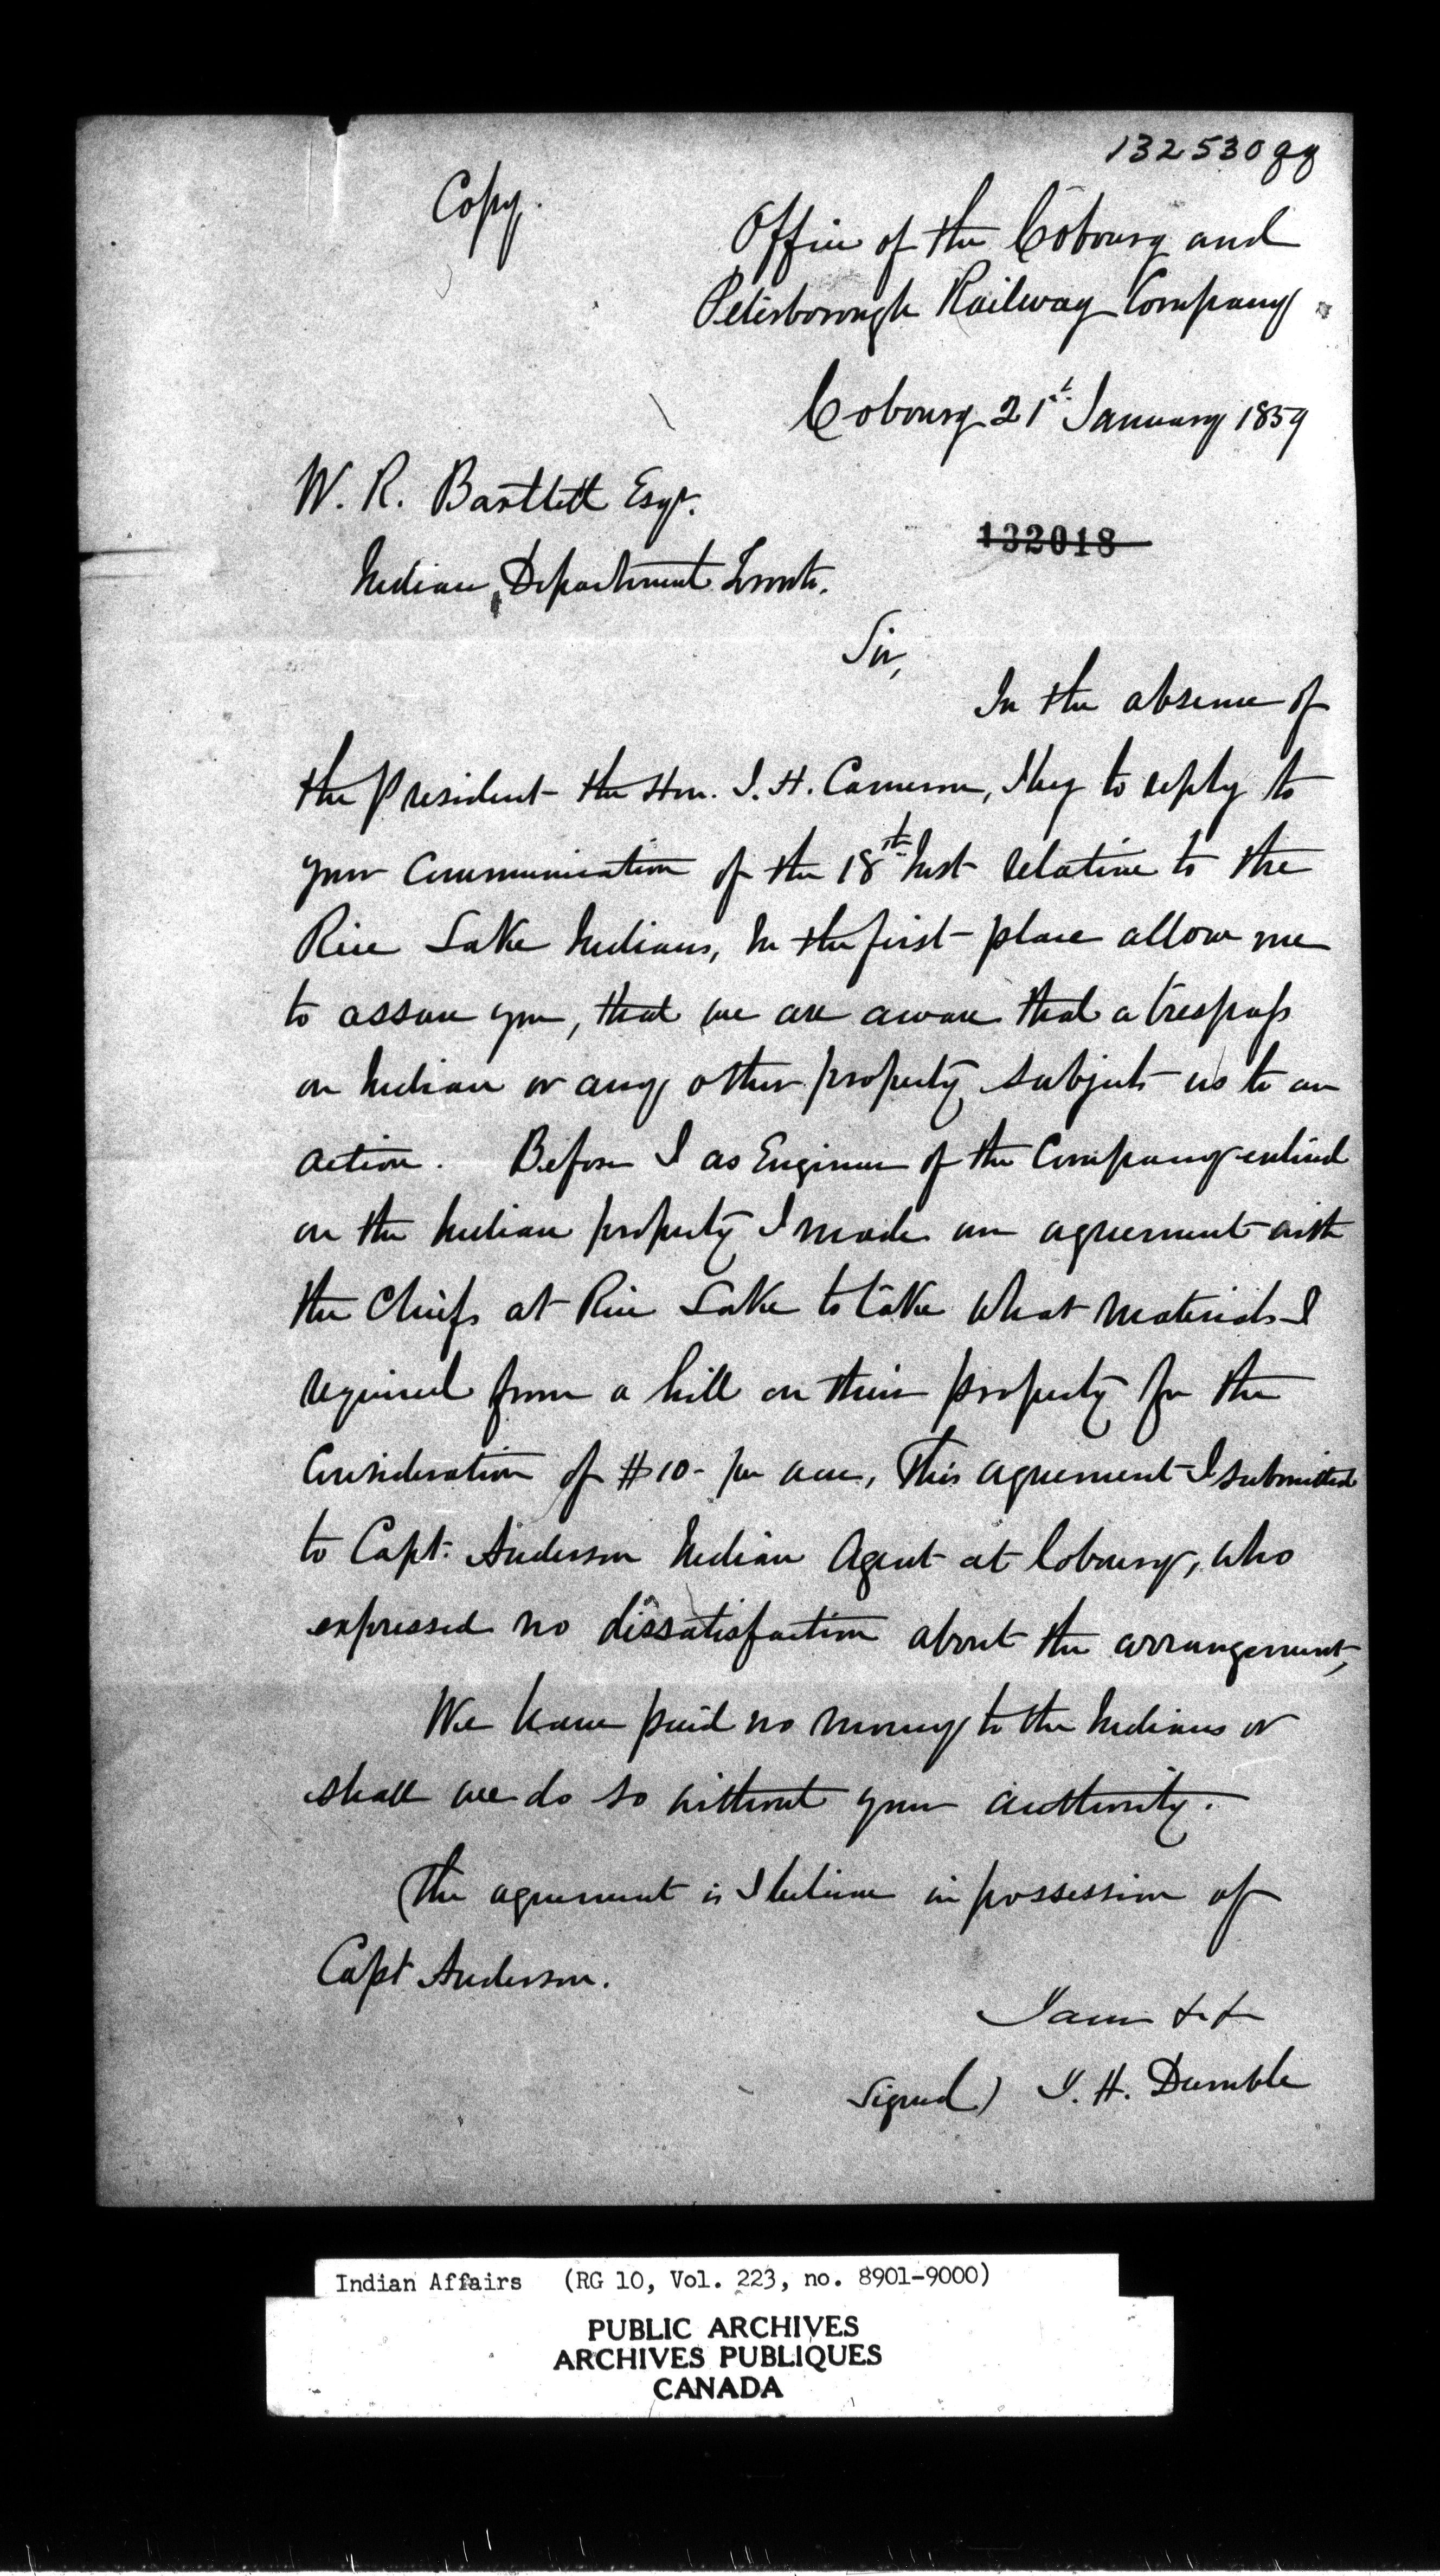 132530gg
Copy.
Office of the Cobourg and
Peterborough Railway Company
Cobourg 21st January 1859
W. R. Bartlett Esqr.
132018
Indian Department Toronto.
Sir,
In the absence of
the President the Hon. J. H. Cameron, I beg to reply to
your Communication of the 18th Inst relative to the
Rice Lake Indians, In the first place allow me
to assure you, that we are aware that a trespass
on Indian or any other property subjects us to an
action. Before I as Engineer of the Company entered
on the Indian property I made an agreement with
the Chiefs at Rice Lake to take what materials I
required from a hill on their property for the
Consideration of $10- per acre, This agreement I submitted
to Capt. Anderson Indian Agent at Cobourg, who
expressed no dissatisfaction about the arrangement,
We have paid no money to the Indians or
shall we do so without your authority.
The agreement is I believe in possession of
Capt Anderson.
I am &c &c
Signed) J. H. Dumble
Indian Affairs (RG 10, Vol. 223, no. 8901-9000)
PUBLIC ARCHIVES
ARCHIVES PUBLIQUES
CANADA